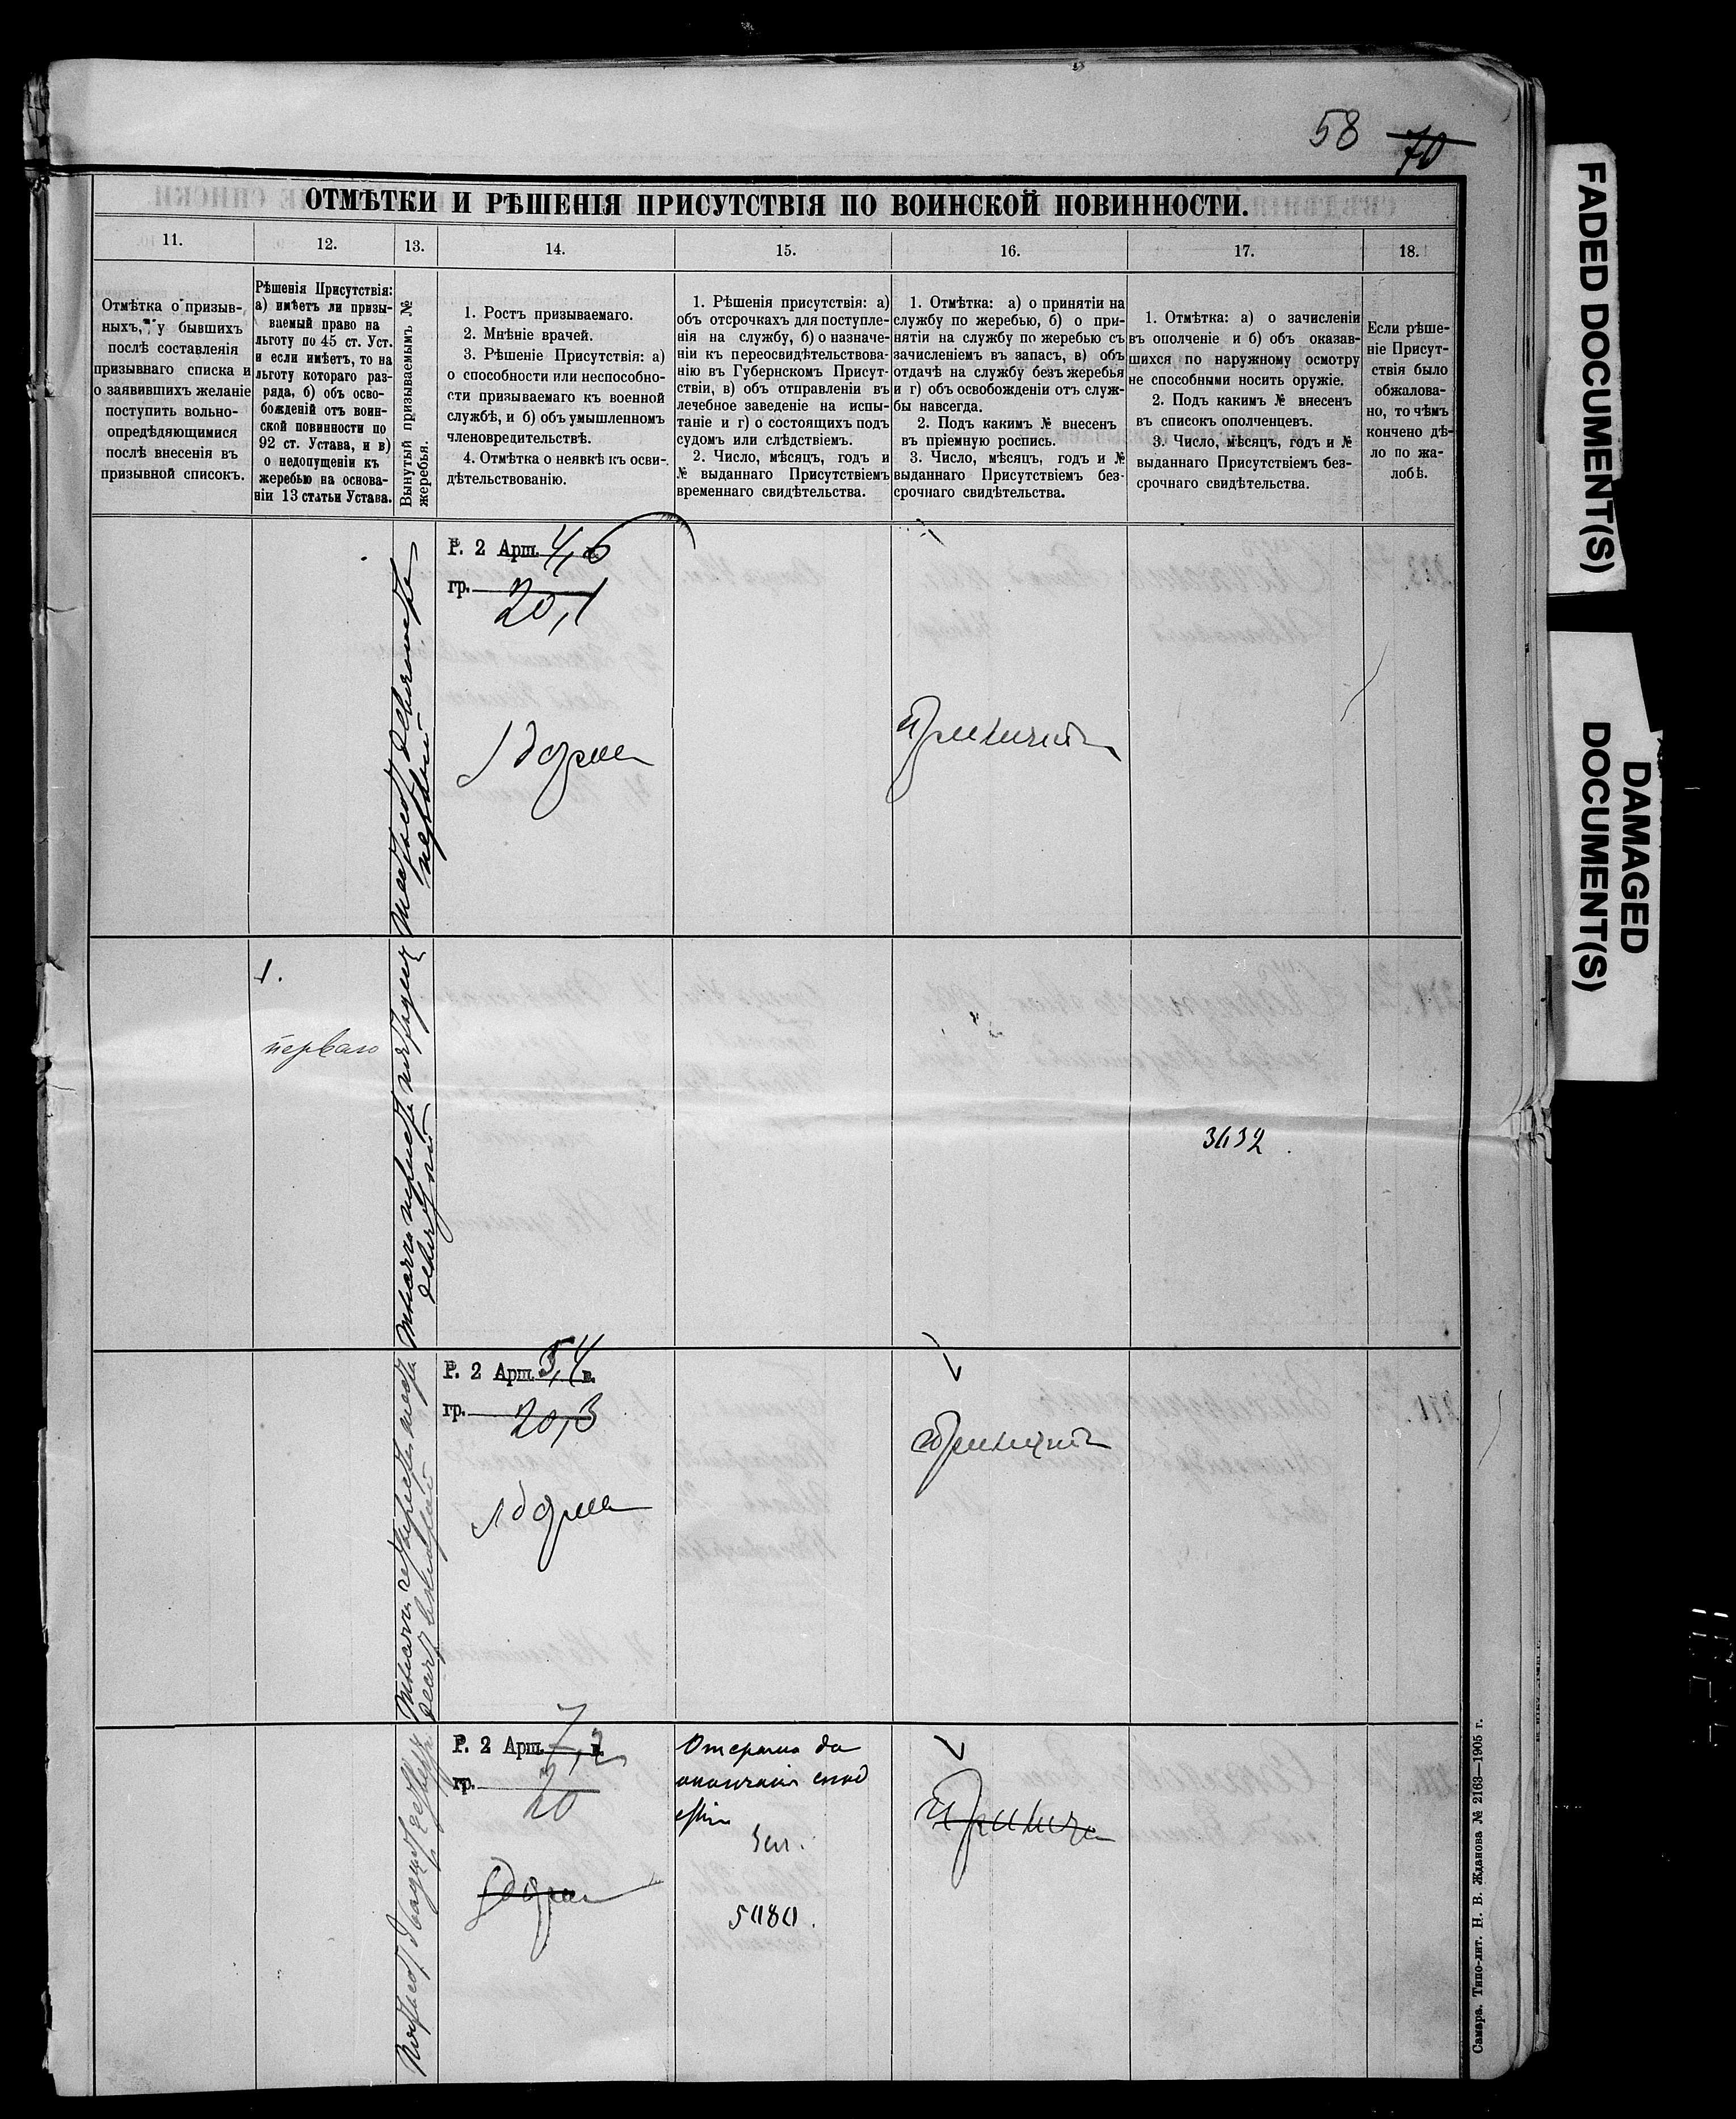 58 70
ОТМѢТКИ И РѢШЕНІЯ ПРИСУТСТВІЯ ПО ВОИНСКОЙ ПОВИННОСТИ.
11. 12. 13. 14. 15. 16. 17. 18.
Отмѣтка о призыв-
ныхъ, у бывшихъ
послѣ составленія
призывнаго списка и
о заявившихъ желаніе
поступить вольно-
опредѣдяющимися
послѣ внесенія въ
призывной списокъ.
Рѣшенія Присутствія:
а) имѣетъ ли призы-
ваемый право на
льготу по 45 ст. Уст.
и если имѣетъ, то на
льготу котораго раз-
ряда, б) объ осво-
божденій отъ воин-
ской повинности по
92 ст. Устава, и в)
о недопущеніи къ
жеребью на основа-
ніи 13 статьи Устава.
Вынутый призываемымъ №
жеребья.
1. Ростъ призываемаго.
2. Мнѣніе врачей.
3. Рѣшеніе Присутствія: а)
о способности или неспособно-
сти призываемаго къ военной
службѣ, и б) объ умышленномъ
членовредительствѣ.
4. Отмѣтка о неявкѣ къ осви-
дѣтельствованію.
1. Рѣшенія присутствія: а)
объ отсрочкахъ для поступле-
нія на службу, б) о назначе-
ніи къ переосвидѣтельствова-
нію въ Губернскомъ Присут-
ствіи, в) объ отправленіи въ
лечебное заведеніе на испы-
таніе и г) о состоящихъ подъ
судомъ или слѣдствіемъ.
2. Число, мѣсяцъ, годъ и
№ выданнаго Присутствіемъ
временнаго свидѣтельства.
1. Отмѣтка: а) о принятіи на
службу по жеребью, б) о при-
нятіи на службу по жеребью съ
зачисленіемъ въ запасъ, в) объ
отдачѣ на службу безъ жеребья
и г) объ освобожденіи отъ служ-
бы навсегда.
2. Подъ какимъ № внесенъ
въ пріемную роспись.
3. Число, мѣсяцъ, годъ и №
выданнаго Присутствіемъ без-
срочнаго свидѣтельства.
1. Отмѣтка: а) о зачисленіи
въ ополченіе и б) объ оказав-
шихся по наружному осмотру
не способными носить оружіе.
2. Подъ какимъ № внесенъ
въ списокъ ополченцевъ.
3. Число, мѣсяцъ, годъ и №
выданнаго Присутствіемъ без-
срочнаго свидѣтельства.
Если рѣше-
ніе Присут-
ствія было
обжалова-
но, то чѣмъ
кончено дѣ-
ло по жа-
лобѣ.
первый
Р. 2 Арш. 4,6 в.
гр. 20,1
Годенъ
Принятъ
1.
перваго
3432
Р. 2 Арш. 5,4 в.
гр. 20,3
Годенъ
Принятъ
Р. 2 Арш. 7,2 в.
гр. 20
Годенъ
Отсрочка до
окончанія
5080.
Принятъ
Самара. Типо-лит. Н. В. Жданова № 2163—1905 г.
FADED DOCUMENT(S)
DAMAGED
DOCUMENT(S)